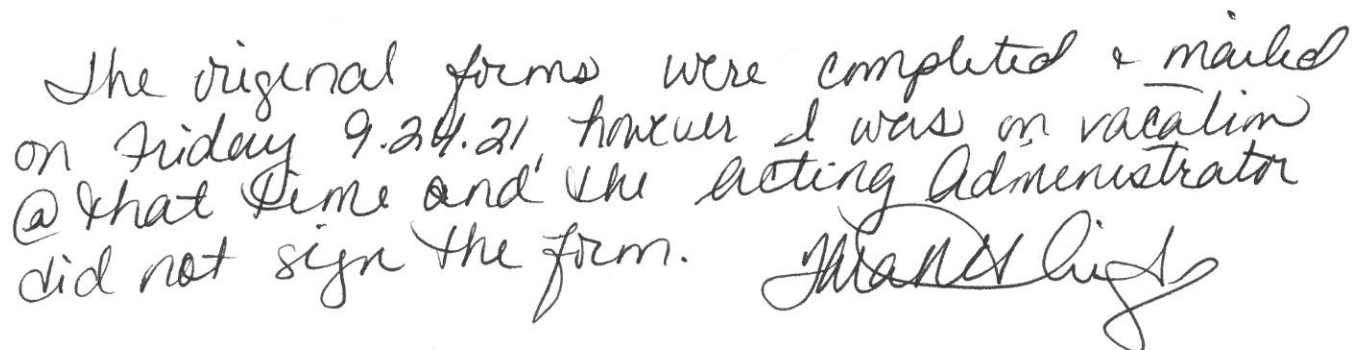 The original forms were completed & mailed
on Friday 9.24.21, however I was on vacation
@ that time and the acting Administrator
did not sign the form.